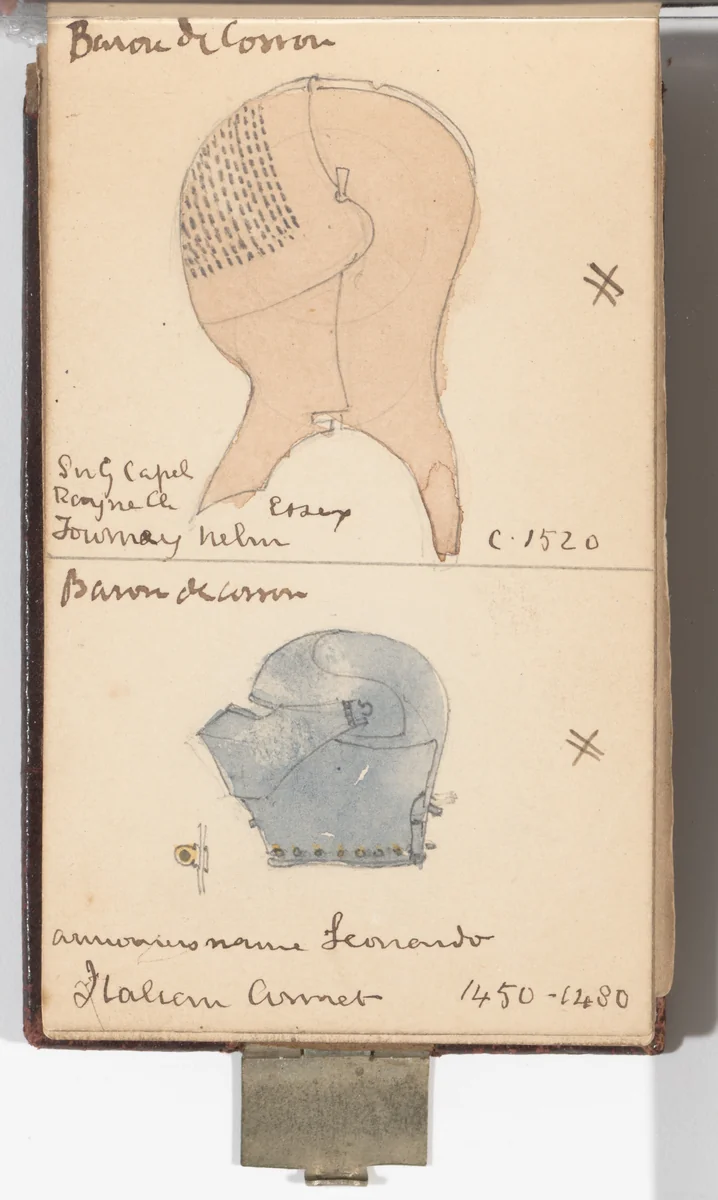 Baron de Cosson
Sir G Capel
Rayne Ch
Essex
Tournay helm
C. 1520
Baron de Cosson
armourers name Leonardo
Italian Armet 1450-1480